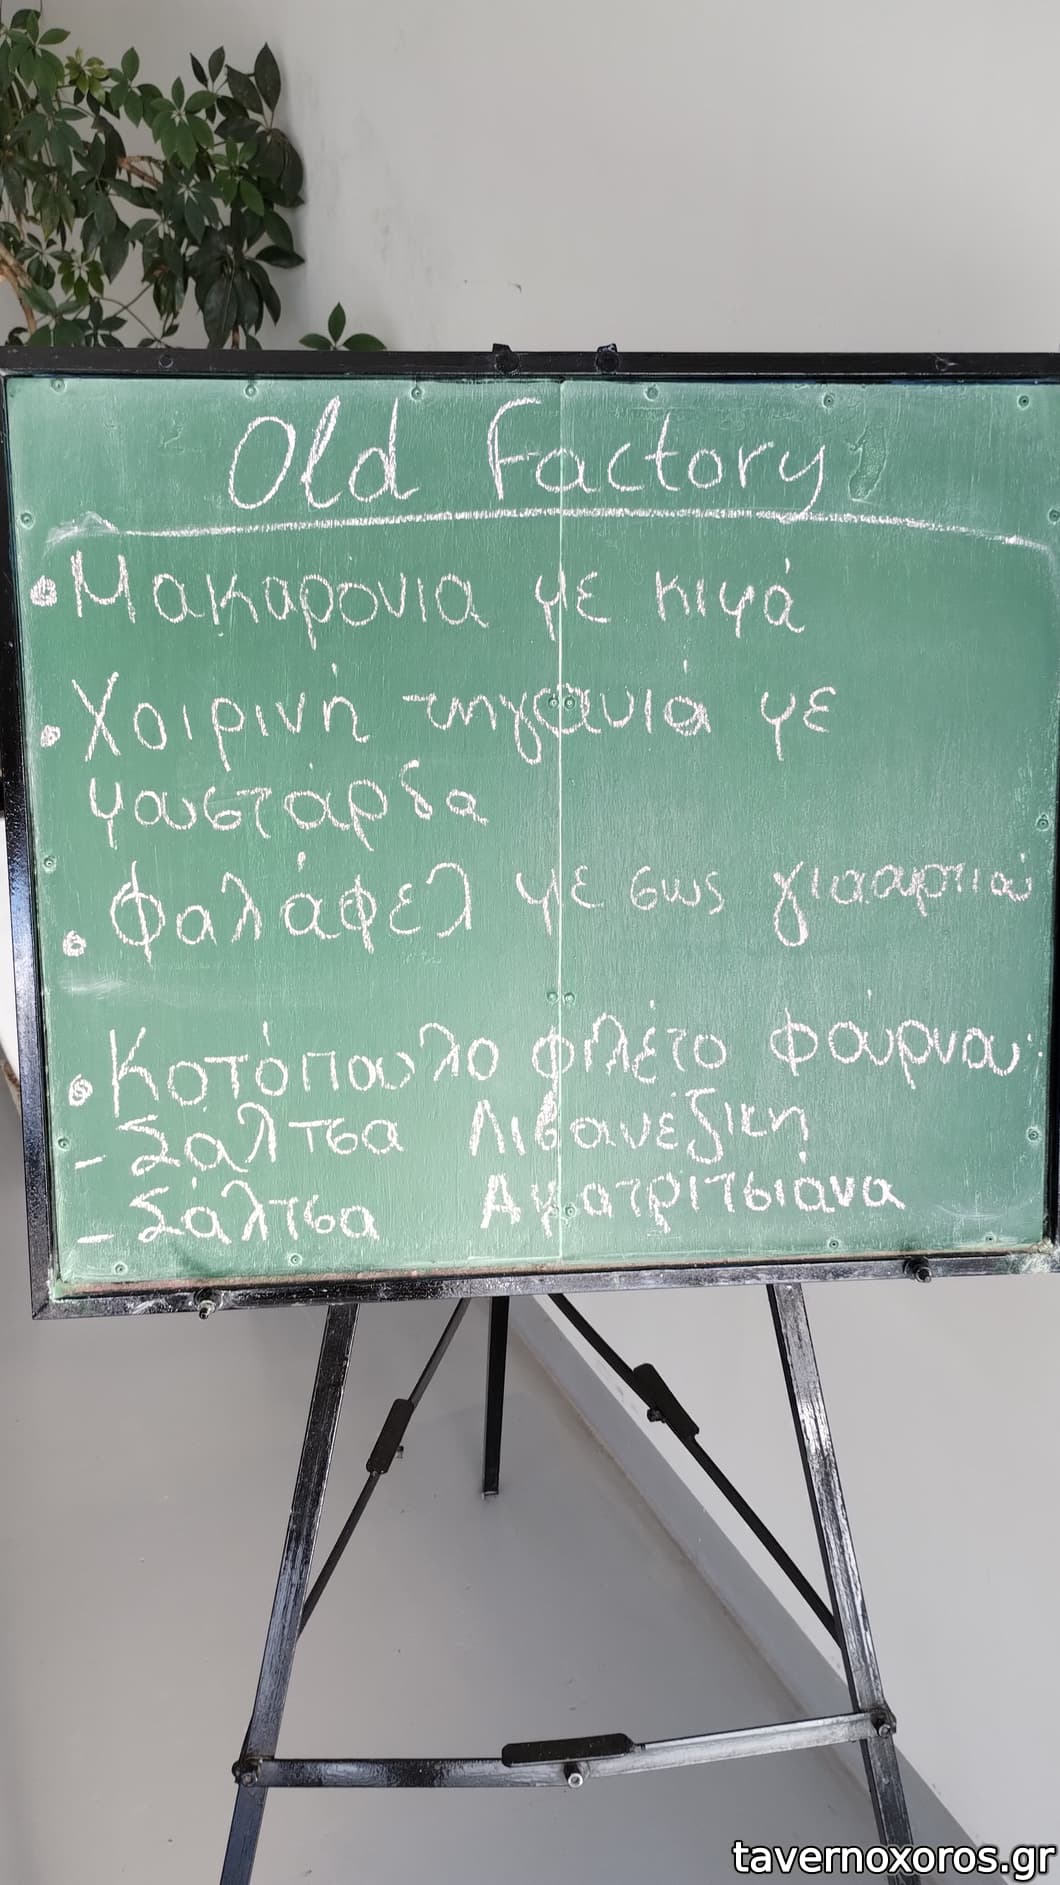 Old Factory
• Μακαρόνια με κιμά
• Χοιρινή τηγανιά με
μουστάρδα
• Φαλάφελ με σως γιαουρτιού
• Κοτόπουλο φιλέτο φούρνου:
- Σάλτσα Λιβανέζικη
- Σάλτσα Αματριτσιάνα
tavernoxoros.gr